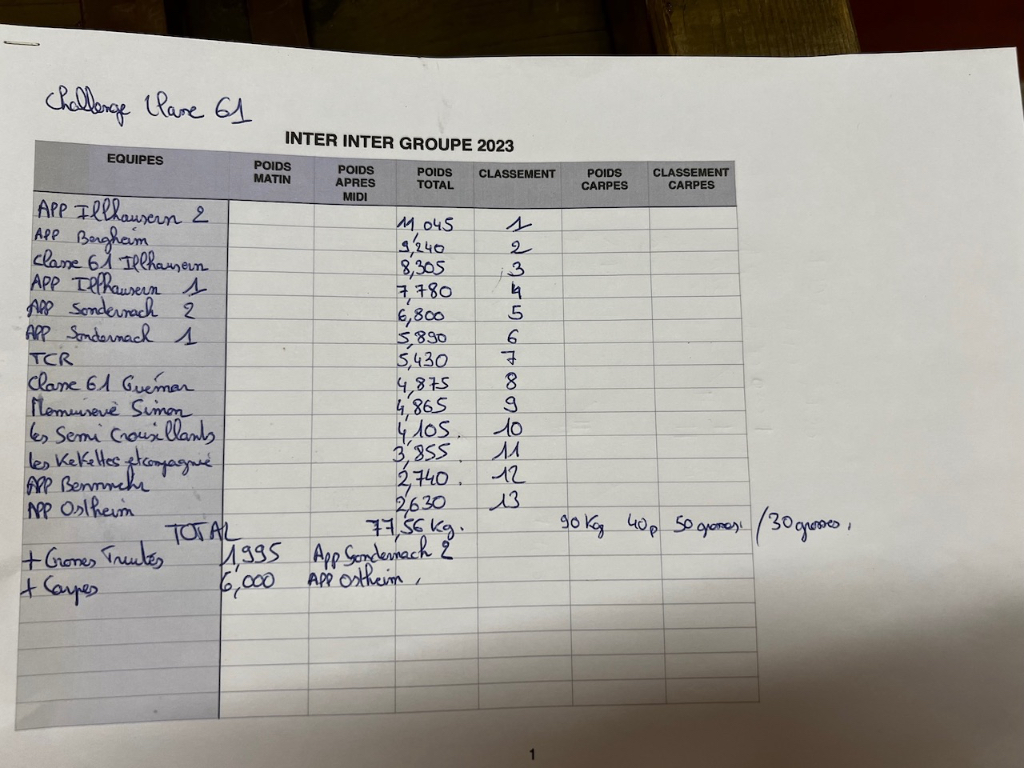 Challenge Classe 61
INTER INTER GROUPE 2023
EQUIPES POIDS MATIN POIDS APRES MIDI POIDS TOTAL CLASSEMENT POIDS CARPES CLASSEMENT CARPES
APP Illhausern 2 11,045 1
APP Bergheim 9,240 2
Classe 61 Illhausern 8,305 3
APP Illhausern 1 7,780 4
APP Sondernach 2 6,800 5
APP Sondernach 1 5,890 6
TCR 5,430 7
Classe 61 Guémar 4,875 8
Simon 4,865 9
les Semi Crouxillants 4,105. 10
les KeKettes et compagnie 3,855. 11
APP Bennwihr 2,740. 12
APP Ostheim 2,630 13
TOTAL 77,56 Kg. 90 Kg 40p 50 grosses. / 30 grosses.
+ Grosses Truites 1,995 App Sondernach 2
+ Carpes 6,000 APP Ostheim.
1